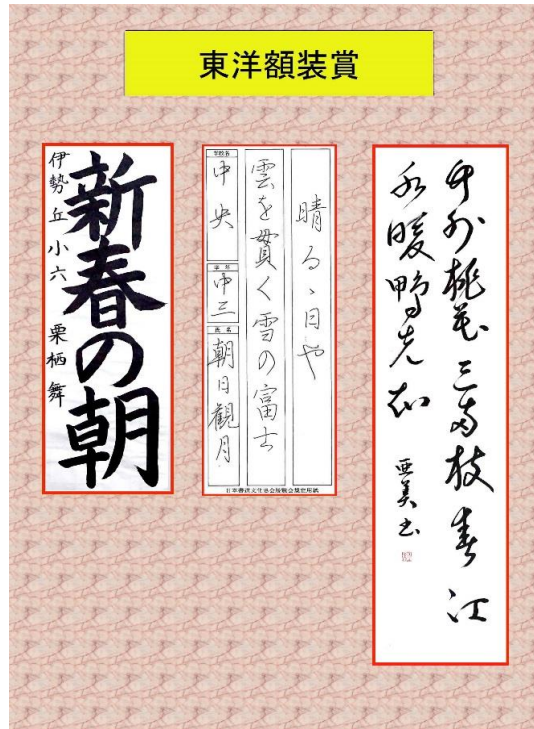 東洋額装賞
新春の朝
伊勢丘小六 栗栖舞
晴るゝ日や
雲を貫く雪の富士
学校名 中央
学年 中三
氏名 朝日観月
日本書道文化協会展覧会規定用紙
竹外桃花三両枝春江
水暖鴨先知
亜美書